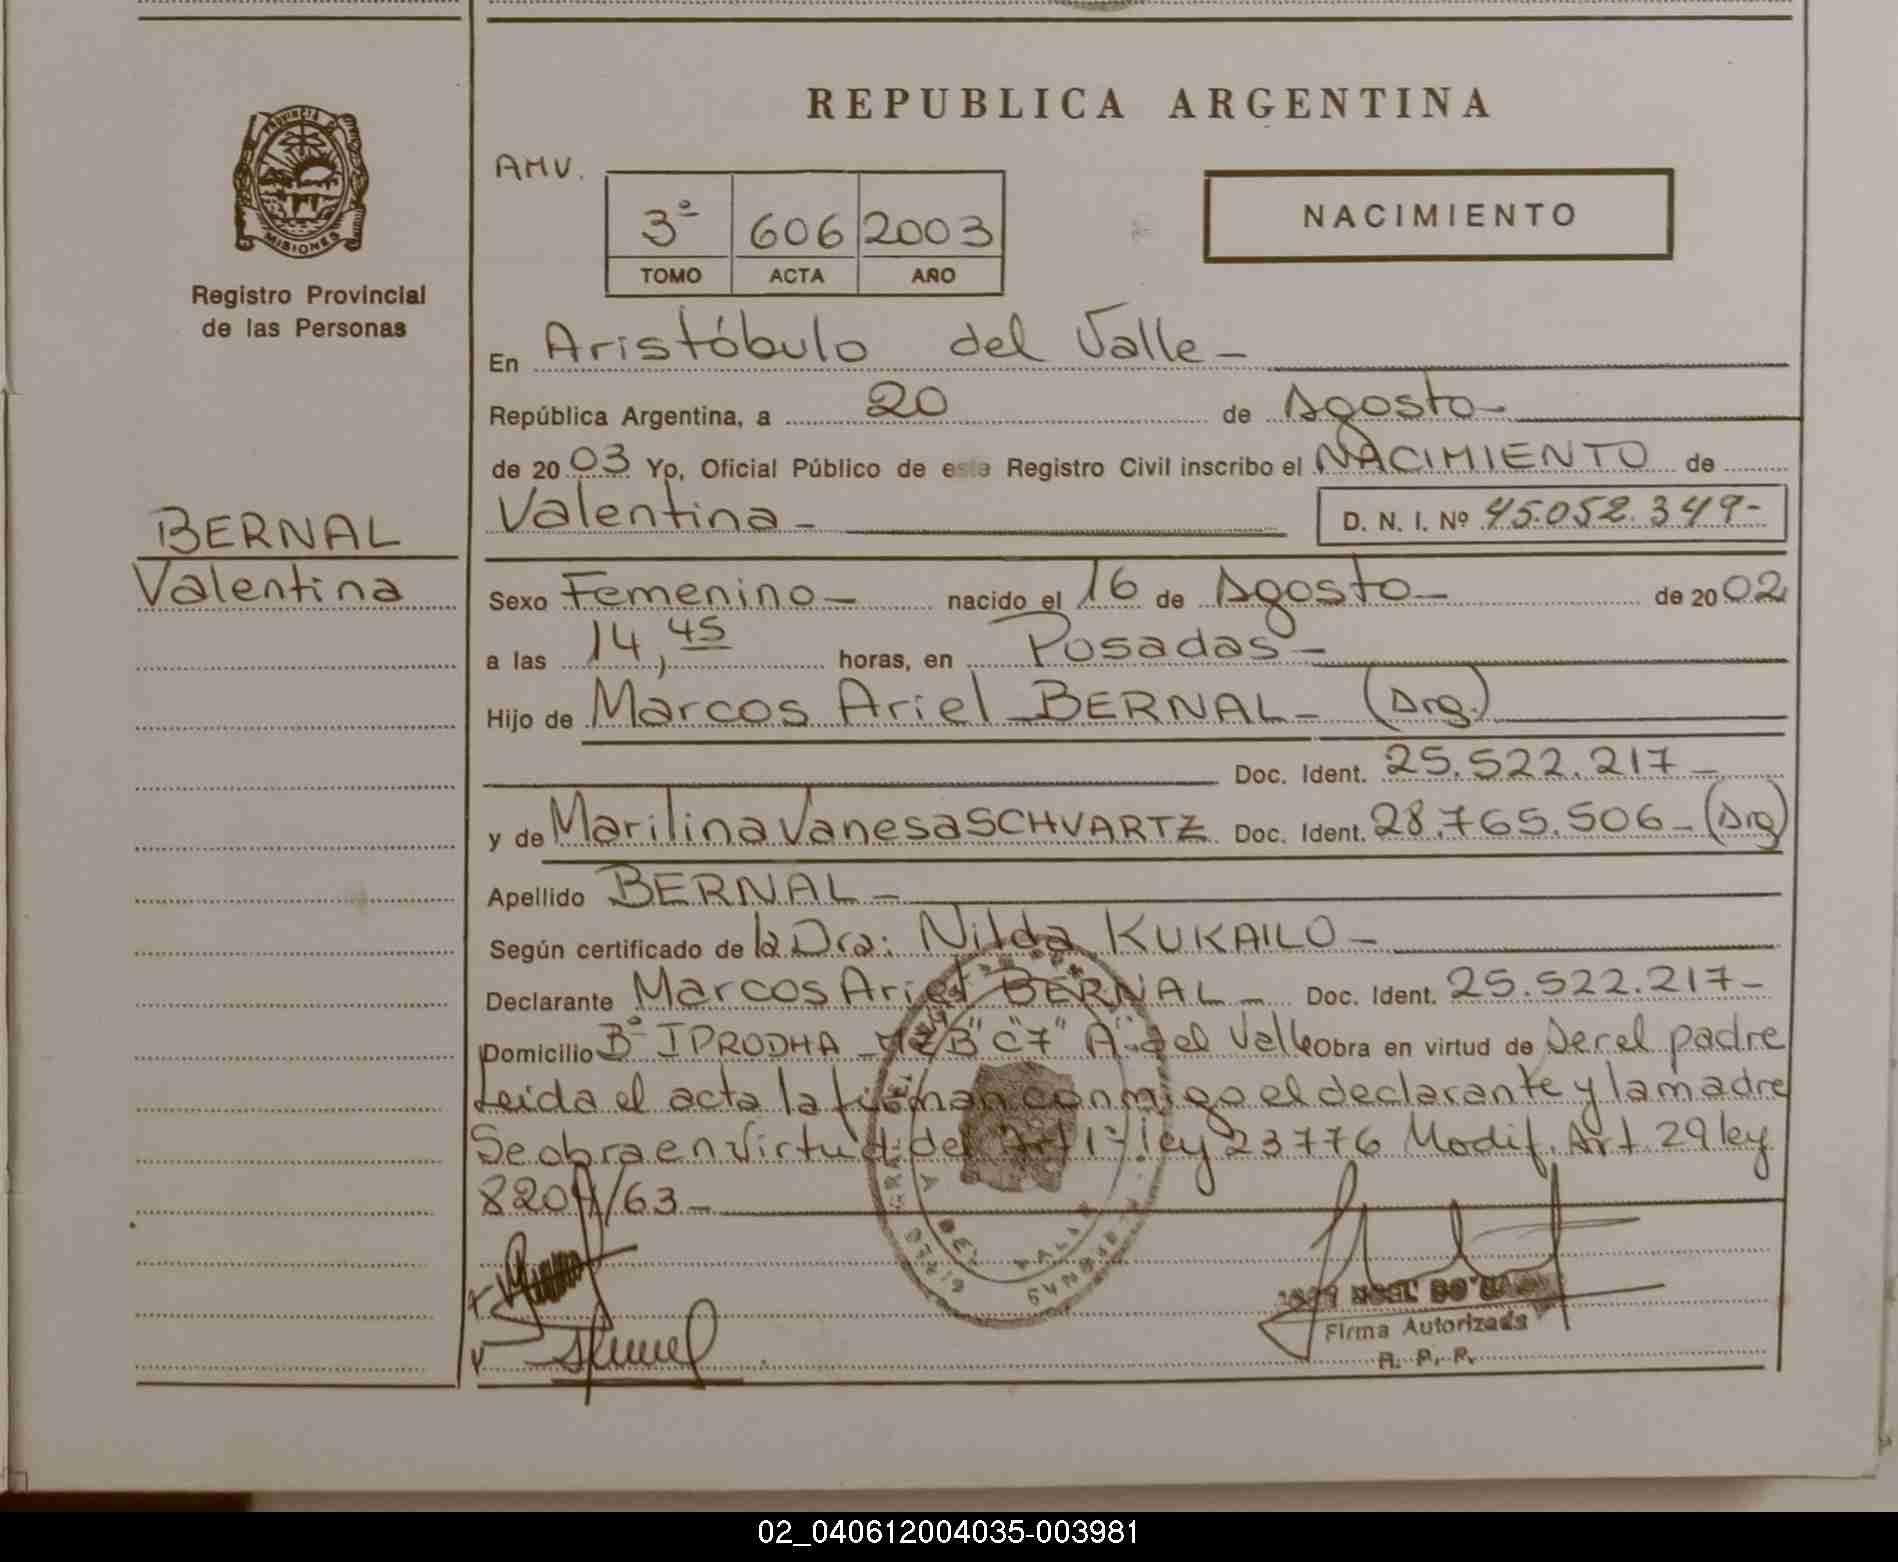 REPUBLICA ARGENTINA
PROVINCIA DE
MISIONES
Registro Provincial
de las Personas
AMV.
3º 606 2003
TOMO ACTA AÑO
NACIMIENTO
En Aristóbulo del Valle -
República Argentina, a 20 de Agosto -
de 20 03 Yo, Oficial Público de este Registro Civil inscribo el NACIMIENTO de
Valentina - D. N. I. Nº 45.052.349-
BERNAL
Valentina
Sexo Femenino - nacido el 16 de Agosto - de 20 02
a las 14,45 horas, en Posadas -
Hijo de Marcos Ariel BERNAL - (Arg.)
Doc. Ident. 25.522.217 -
y de Marilina Vanesa SCHVARTZ Doc. Ident. 28.765.506 - (Arg)
Apellido BERNAL -
Según certificado de la Dra: Nilda KUKAILO -
Declarante Marcos Ariel BERNAL - Doc. Ident. 25.522.217 -
Domicilio Bº IPRODHA MZ "B" C "7" A. del Valle Obra en virtud de Ser el padre
Leida el acta la firman conmigo el declarante y la madre
Se obra en virtud del Art 1º ley 23776 Modif. Art. 29 ley
8204/63 -
DEL VALLE
Firma Autorizada
R. P. P.
02_040612004035-003981